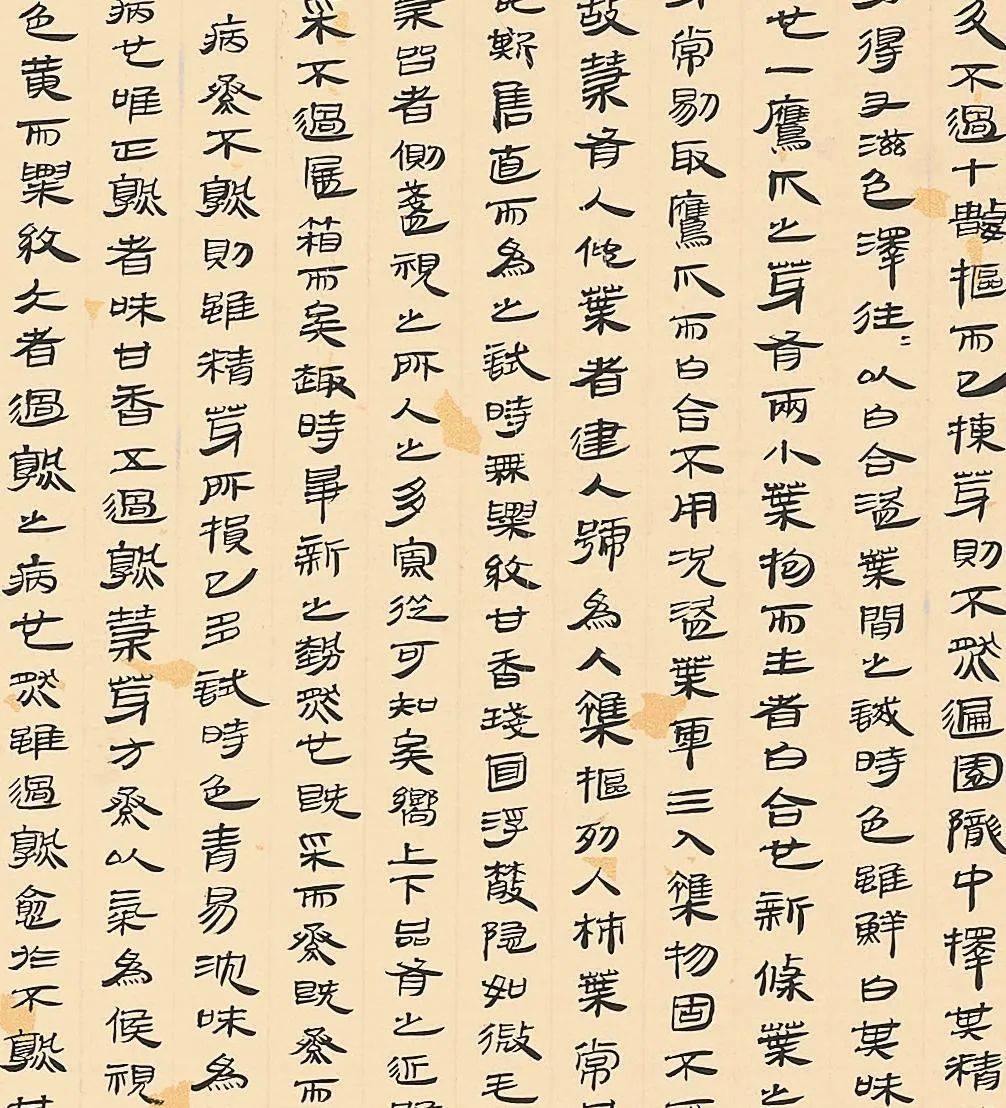 不過十數摳而已揀芽則不然遍園隴中擇其精
得又滋色澤往〻以白合盜葉間之試時色雖鮮白其味
也一鷹爪之芽有兩小葉抱而生者白合也新條葉之
常剔取鷹爪而白合不用況盜葉乎三入雜物固不
故葉有入他葉者建人號為入雜摳列入柿葉常
欺售直而為之試時無粟紋甘香琖面浮散隱如微毛
葉品者側盞視之所入之多寡從可知矣嚮上下品有之近
采不過箱而矣趣時爭新之勢然也既采而蒸既蒸而
病蒸不熟則雖精芽所損已多試時色青易沈味為
病也唯正熟者味甘香五過熟葉芽方蒸以氣為候視
色黄而粟紋大者過熟之病也然雖過熟愈於不熟